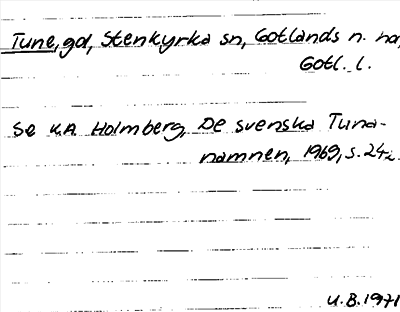 Tune, gd, Stenkyrka sn, Gotlands n. hd,
Gotl. l.
Se K.A. Holmberg, De svenska Tuna-
namnen, 1969, s. 242.
U.B. 1971